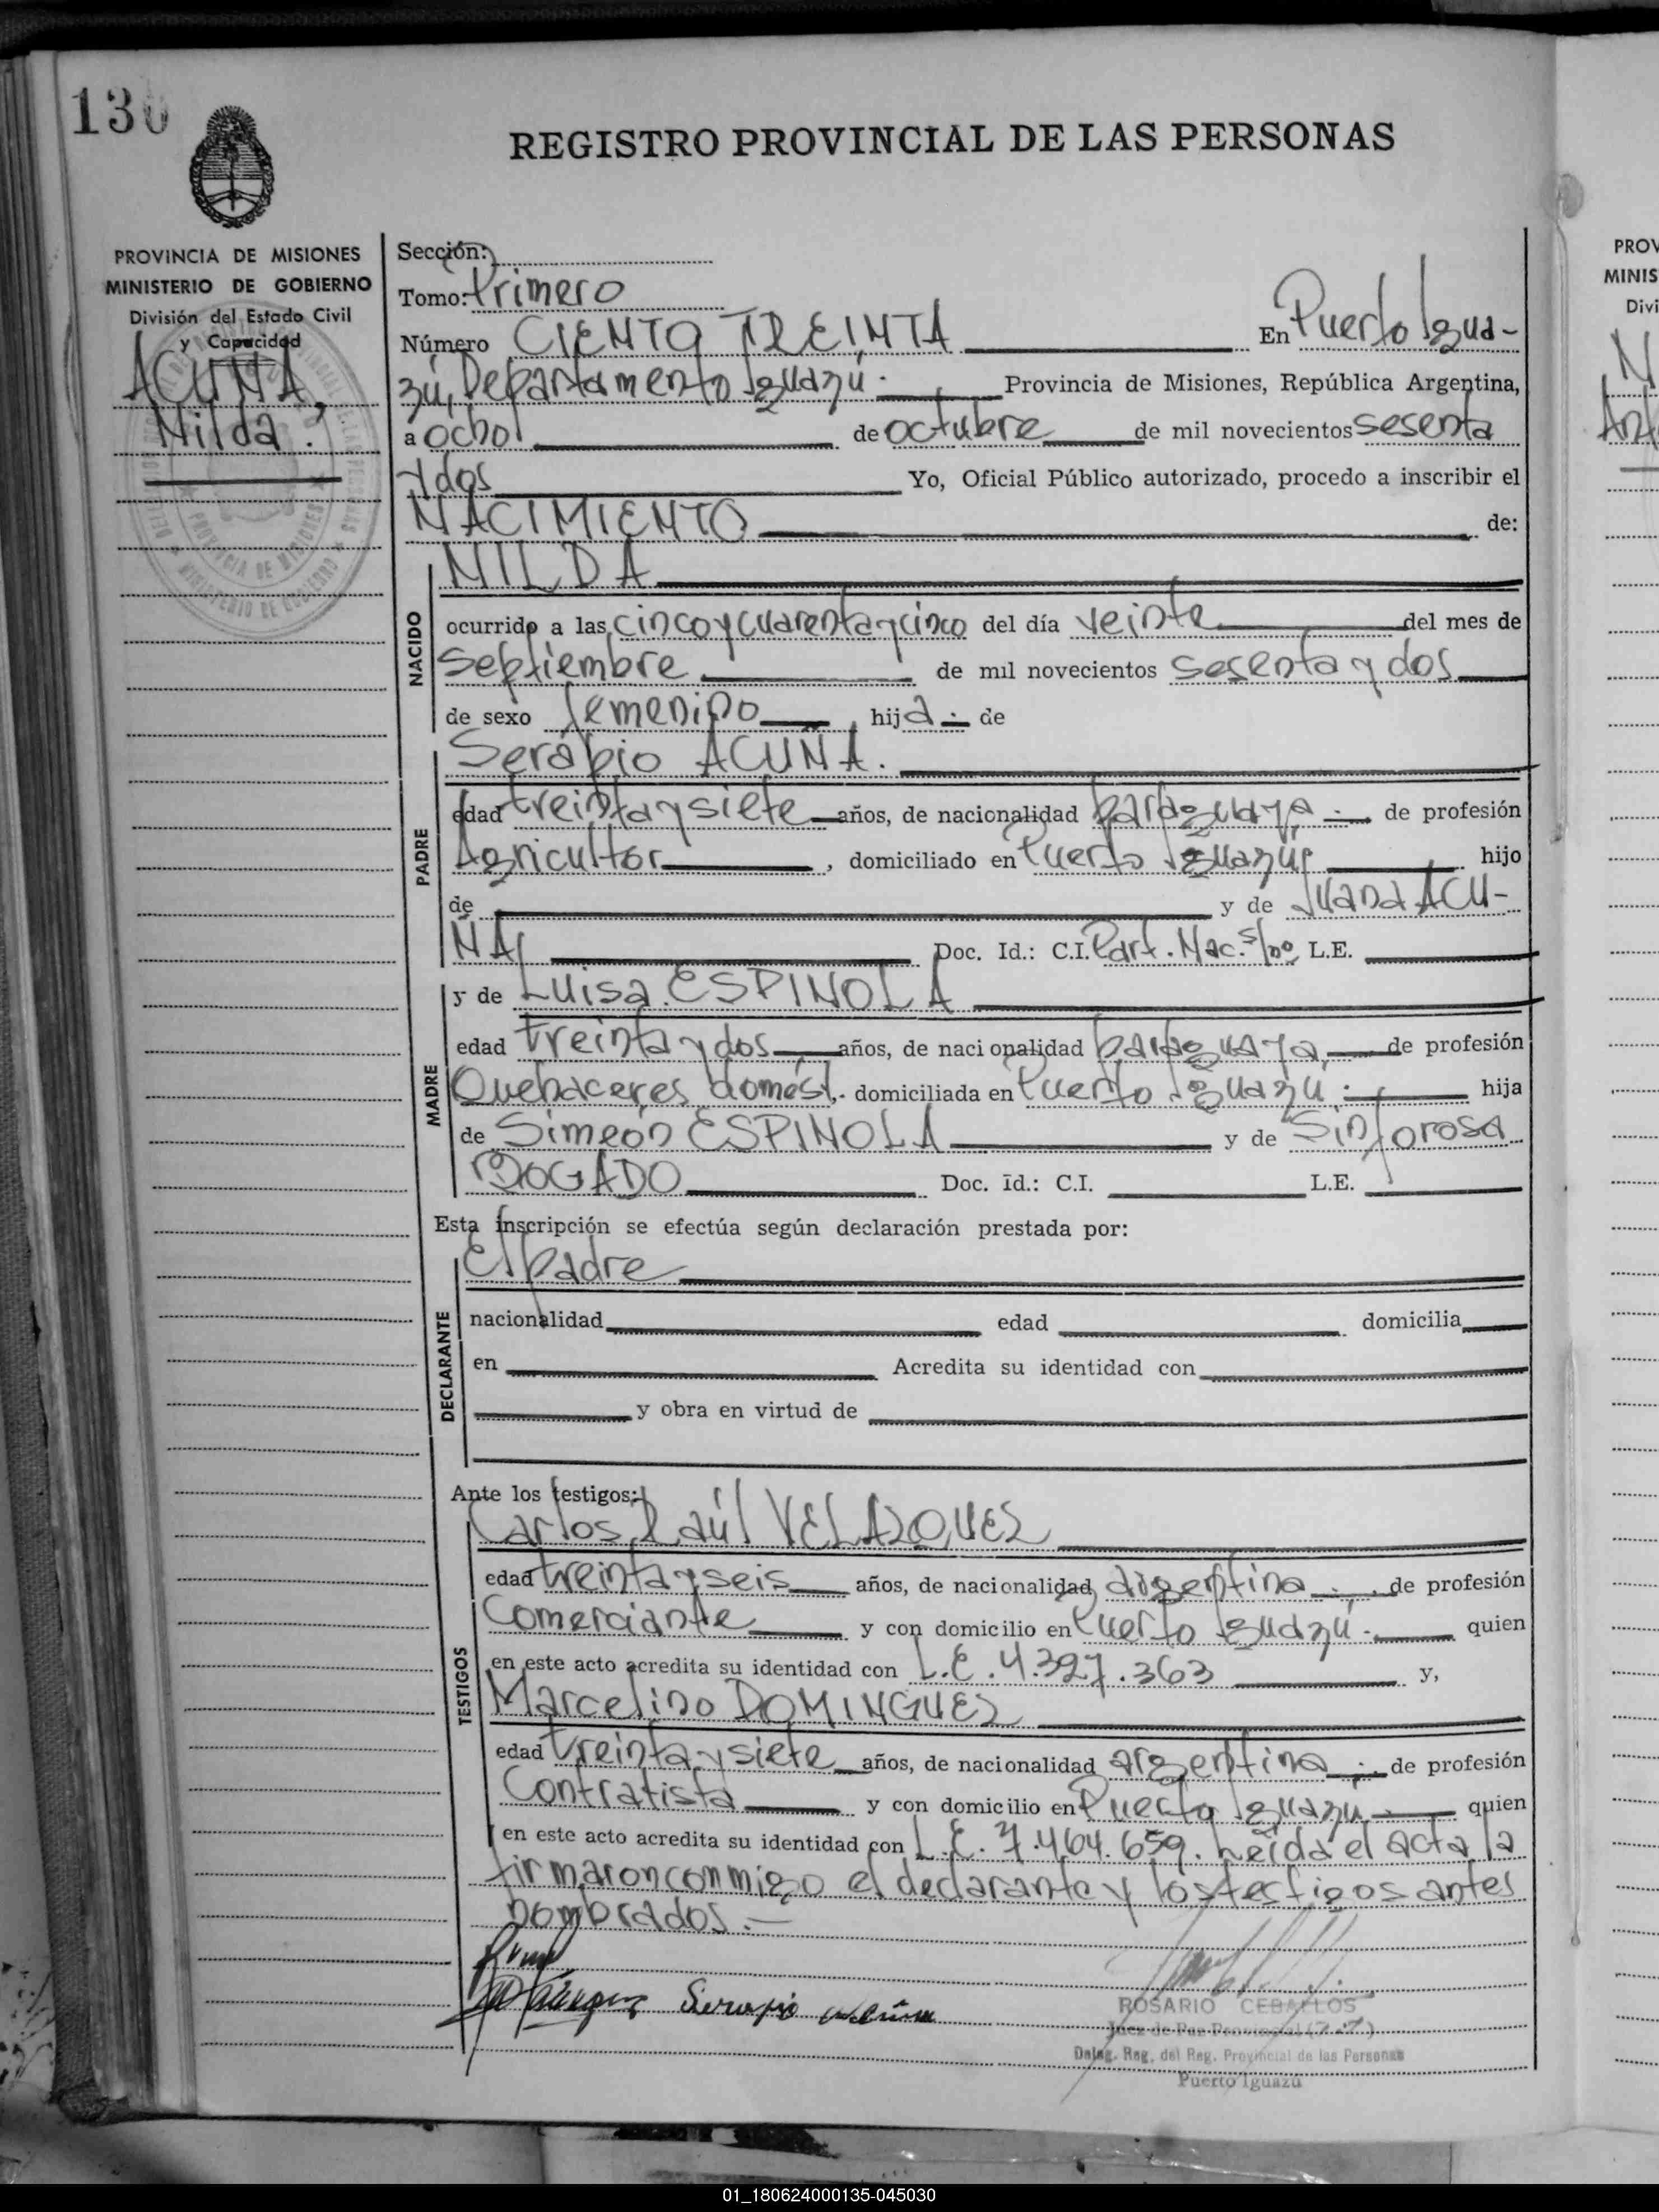 130
REGISTRO PROVINCIAL DE LAS PERSONAS
PROVINCIA DE MISIONES
MINISTERIO DE GOBIERNO
División del Estado Civil
y Capacidad
ACUÑA,
Nilda.
Sección:
Tomo: Primero
Número CIENTO TREINTA En Puerto Igua-
zú, Departamento Iguazú. Provincia de Misiones, República Argentina,
a ocho de octubre de mil novecientos sesenta
y dos Yo, Oficial Público autorizado, procedo a inscribir el
NACIMIENTO de:
NILDA
NACIDO
ocurrido a las cinco y cuarenta y cinco del día veinte del mes de
septiembre de mil novecientos sesenta y dos
de sexo femenino hija.- de
Serapio ACUÑA.
PADRE
edad treinta y siete años, de nacionalidad paraguaya.- de profesión
Agricultor, domiciliado en Puerto Iguazú, hijo
de y de Juana ACU-
ÑA, Doc. Id.: C.I. Part. Nac. s/no L.E.
MADRE
y de Luisa ESPINOLA
edad treinta y dos años, de nacionalidad paraguaya, de profesión
Quehaceres domést. domiciliada en Puerto Iguazú.- hija
de Simeón ESPINOLA y de Sinforosa
BOGADO Doc. Id.: C.I. L.E.
Esta inscripción se efectúa según declaración prestada por:
El padre
DECLARANTE
nacionalidad edad domicilia
en Acredita su identidad con
y obra en virtud de
Ante los testigos:
Carlos Raúl VELAZQUEZ
TESTIGOS
edad treinta y seis años, de nacionalidad argentina.- de profesión
Comerciante y con domicilio en Puerto Iguazú.- quien
en este acto acredita su identidad con L.E. 4.327.363 y,
Marcelino DOMINGUEZ
edad treinta y siete años, de nacionalidad argentina.- de profesión
Contratista y con domicilio en Puerto Iguazú quien
en este acto acredita su identidad con L.E. 7.464.659. Leída el acta la
firmaron conmigo el declarante y los testigos antes
nombrados.-
Serapio Acuña
ROSARIO CEBALLOS
Juez de Paz Provincial
Deleg. Reg. del Reg. Provincial de las Personas
Puerto Iguazú
PROV
MINIS
Divi
01_180624000135-045030